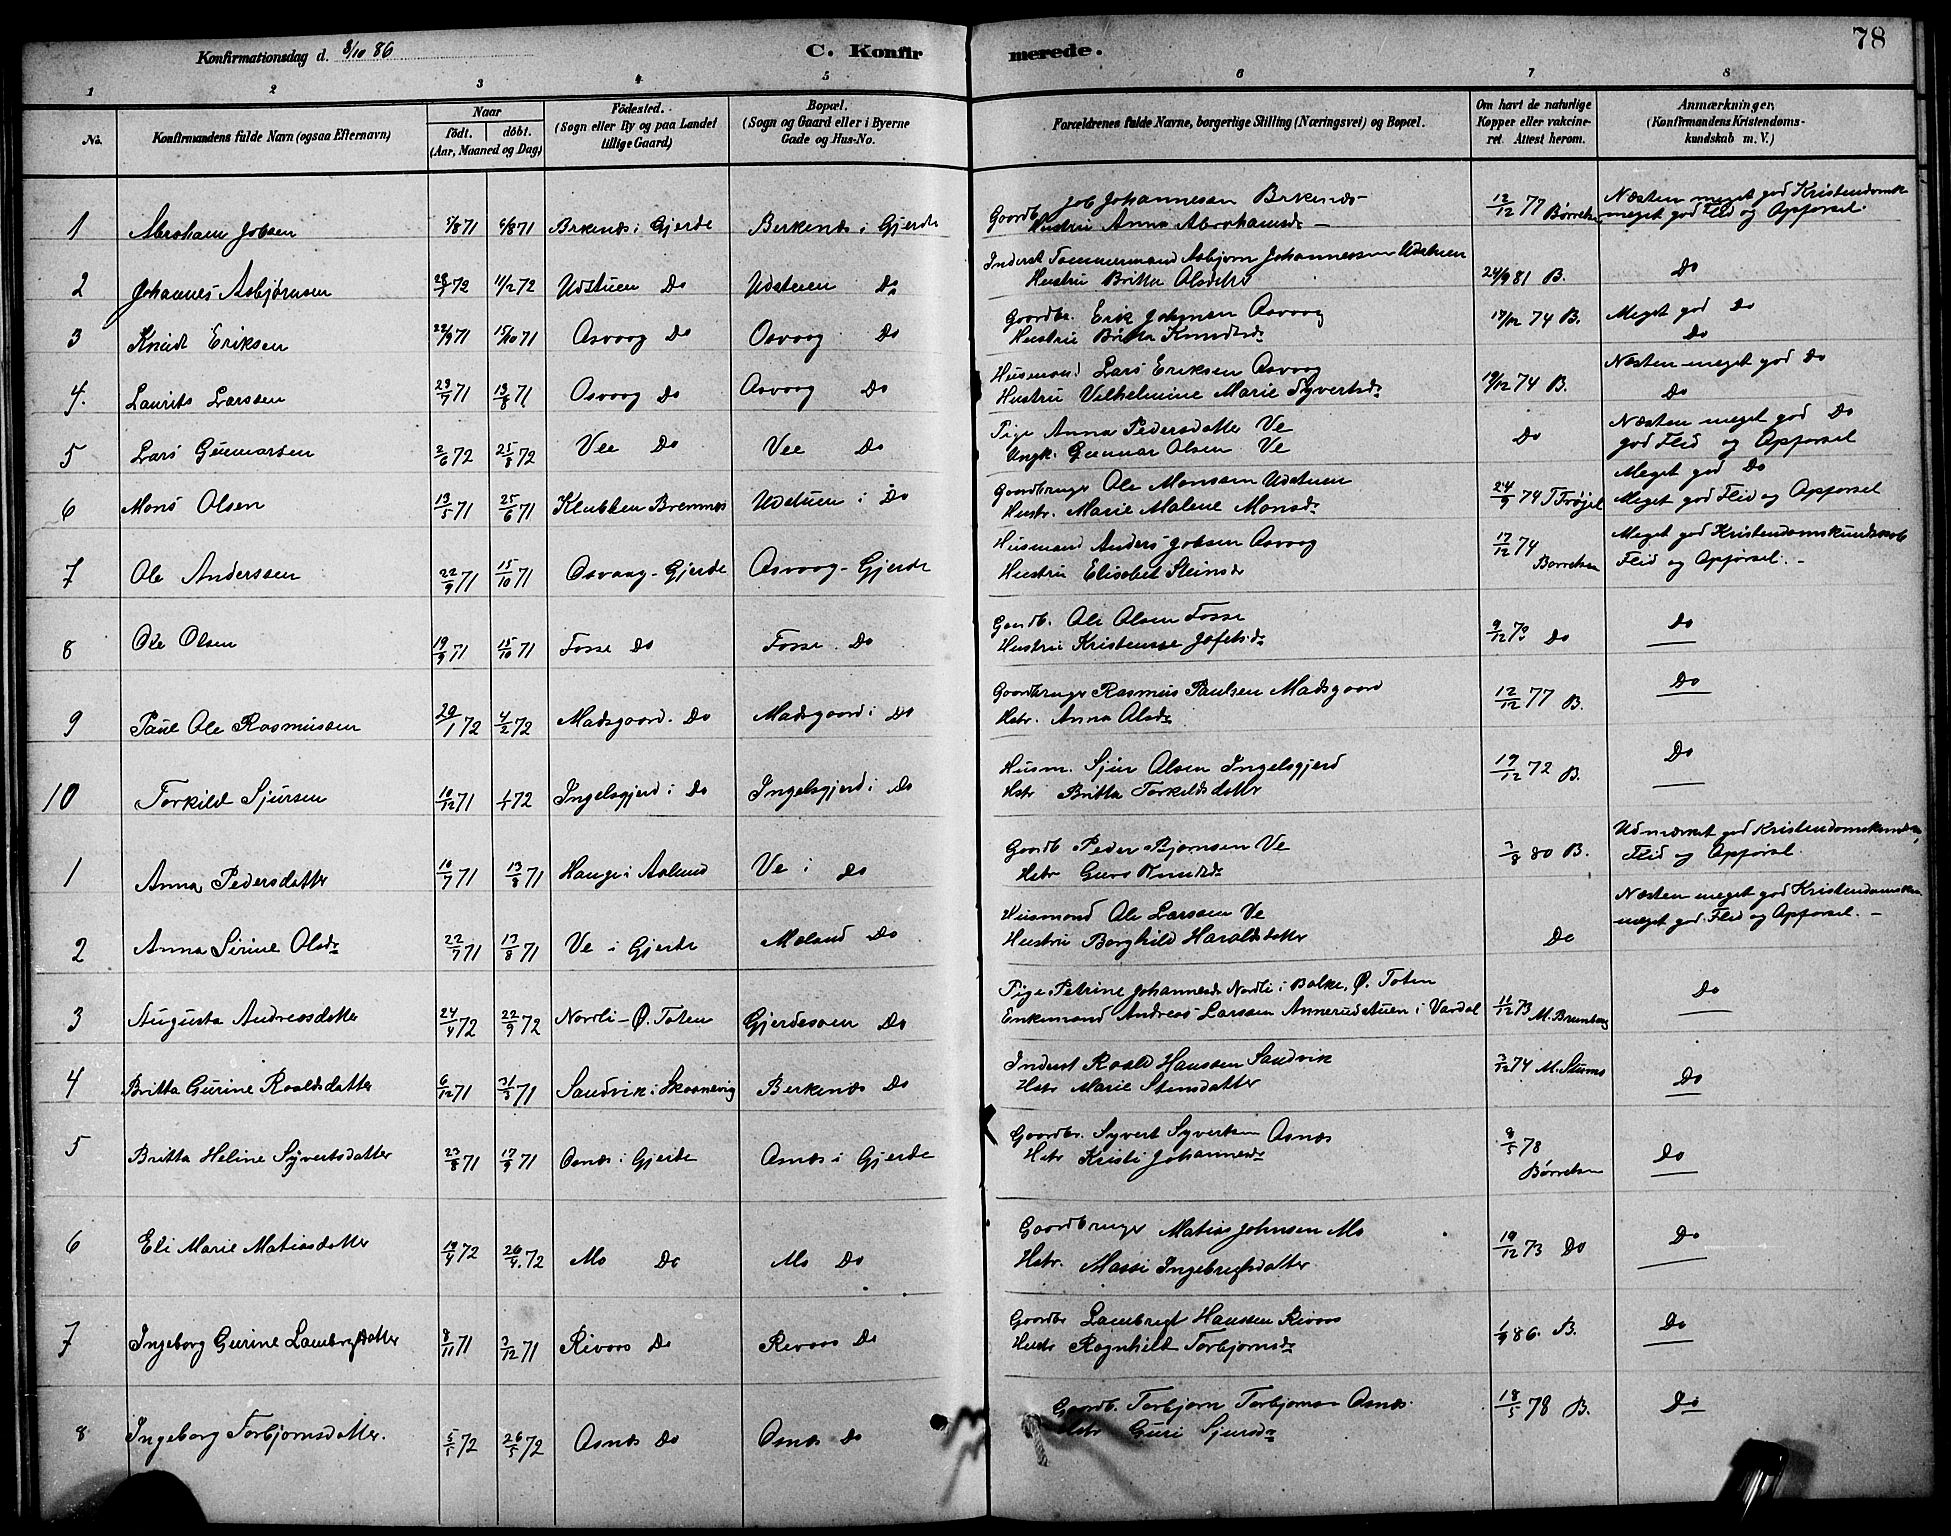 Konfirmationsdag d. 3/10 86 C. Konfirmerede. 78
1 2 3 4 5 6 7 8
No. Konfirmandens fulde Navn (ogsaa Efternavn) Naar födt. döbt. (Aar, Maaned og Dag) Födested. (Sogn eller By og paa Landet tillige Gaard) Bopæl. (Sogn og Gaard eller i Byerne Gade og Hus-No. Forældrenes fulde Navne, borgerlige Stilling (Næringsvei) og Bopæl. Om havt de naturlige Kopper eller vakcineret. Attest herom. Anmærkninger. (Konfirmandens Kristendomskundskab m. V.)
1 Abraham Jobsen 71 6/8 71 Berkenæs i Gjerde Berkenæs i Gjerde Gaardb. Job Johannesen Berkenæs 12/12 77 Børretsen Næsten meget god Kristendomsk
Hustru Anna Abrahamsd. meget god Flid og Opførsel.
2 Johannes Asbjørnsen 72 11/2 72 Udstuen Do Udstuen Do Inderst Tømmermand Asbjørn Johannessen Udstuen
Hustru Britta Olsdtr 24/9 81 B. Do
3 Knudt Eriksen 22/9 71 15/10 71 Osvaag Do Osvaag Do Gaardbr. Erik Johnsen Osvaag 17/12 74 B. Meget god Do
Hustru Britta Knudtsd. Do
4. Laurits Larssen 23/7 71 13/8 71 Osvaag Do Osvaag Do Husmand Lars Eriksen Osvaag 19/12 74 B. Næsten meget god Do
Hustru Vilhelmine Marie Syvertsd. Do
5 Lars Gunnarsen 2/6 72 25/8 72 Vee Do Vee Do Pige Anna Pedersdatter Ve Do Næsten meget god Do
Ungk. Gunnar Olsen Ve god Flid og Opførsel
6 Mons Olsen 13/5 71 25/6 71 Klubben Bremnes Udstuen i Do Gaardbruger Ole Monsen Udstuen 24/9 74 T Trøjel Meget god Do
Hustr. Marie Malene Monsd. Meget god Flid og Opførsel
7 Ole Anderssen 22/9 71 15/10 71 Osvaag - Gjerde Osvaag - Gjerde Husmand Anders Jobsen Osvaag 17/12 74 Børretsen Meget god Kristendomskundskab
Hustru Elisabet Steinsd. Flid og Opførsel.-
8 Ole Olsen 19/9 71 15/10 71 Fosse Do Fosse Do Gaardb. Ole Olsen Fosse 9/12 73 Do Do
Hustru Kristense Jofetsd.
9 Paul Ole Rasmussen 20/1 72 4/2 72 Madsgaard. Do Madsgaard i Do Gaardbruger Rasmus Paulsen Madsgaard 12/12 77 B. Do
Hstr. Anna Olsd.
10 Torkild Sjursen 10/12 71 1/1 72 Ingelsgjerd i Do Ingelsgjerd i Do Husm. Sjur Olsen Ingelsgjerd 19/12 72 B. Do
Hstr Britta Torkildsdatter
1 Anna Pedersdatter 16/7 71 13/8 71 Hauge i Ve i Do Gaardb Peder Bjørnsen Ve 80 B. Udmærket god Kristendomskundsk
Hstr Guro Knudtsd. Flid og Opførsel
2 Anna Serine Olsd. 22/7 71 13/8 71 Ve i Gjerde Moland Do Husmand Ole Larssen Ve Næsten meget god Kristendomskun
Hustru Borghild Haraldsdatter Do meget god Flid og Opførsel. -
3 Augusta Andreasdatter 24/4 72 22/9 72 Nordli - Ø. Toten Gjerdesøen Do Pige Petrine Johannesd Nordli i Balke, Ø. Toten
Enkemand Andreas Larssen Annerudstuen i Vardal 11/12 73 M. Brumborg Do
4 Britta Gurine Roaldsdatter 6/12 71 31/3 71 Sandvik i Skaanevig Berkenæs Do Inderst Roald Hanssen Sandvik 3/12 74 M. Do
Hstr Marie Stensdatter
5 Britta Heline Syvertsdatter 23/8 71 17/9 71 Osnæs i Gjerde Osnæs i Gjerde Gaardbr. Syvert Syvertsen Osnæs 9/5 78 Børretsen Do
Hstr Kristi Johannesd.
6 Eli Marie Matiasdatter 19/4 72 26/4. 72 Mo Do Mo Do Gaardbruger Matias Johnsen Mo 19/12 73 Do Do
Hstr. Massi Ingebrigtsdatter
7 Ingeborg Gurine Lambrigtsdatter 8/11 71 3/12 71 Rivaas Do Rivaas Do Gaardbr Lambrigt Hanssen Rivaas 1/9 86. B. Do
Hustr Ragnhild Torbjørnsd.
8 Ingeborg Torbjørnsdatter. 5/5 72 26/5 72 Osnæs Do Osnæs Do Gaardb. Torbjørn Torbjørnsen Osnæs. 18/5 78 B. Do
Hstr Guri Sjursd.